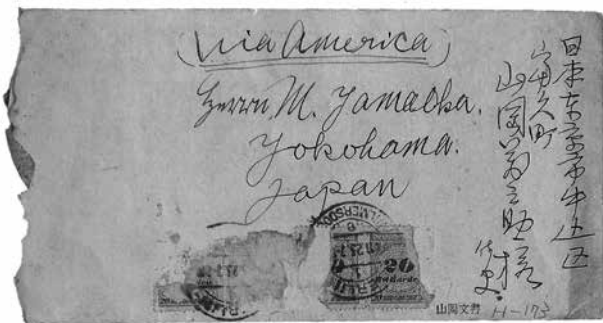 (Via America)
Herrn M. Yamaoka.
Yokohama.
Japan
日本東京市牛込区
富久町
山岡萬之助様
20
Milliarde
山岡文書
H-173